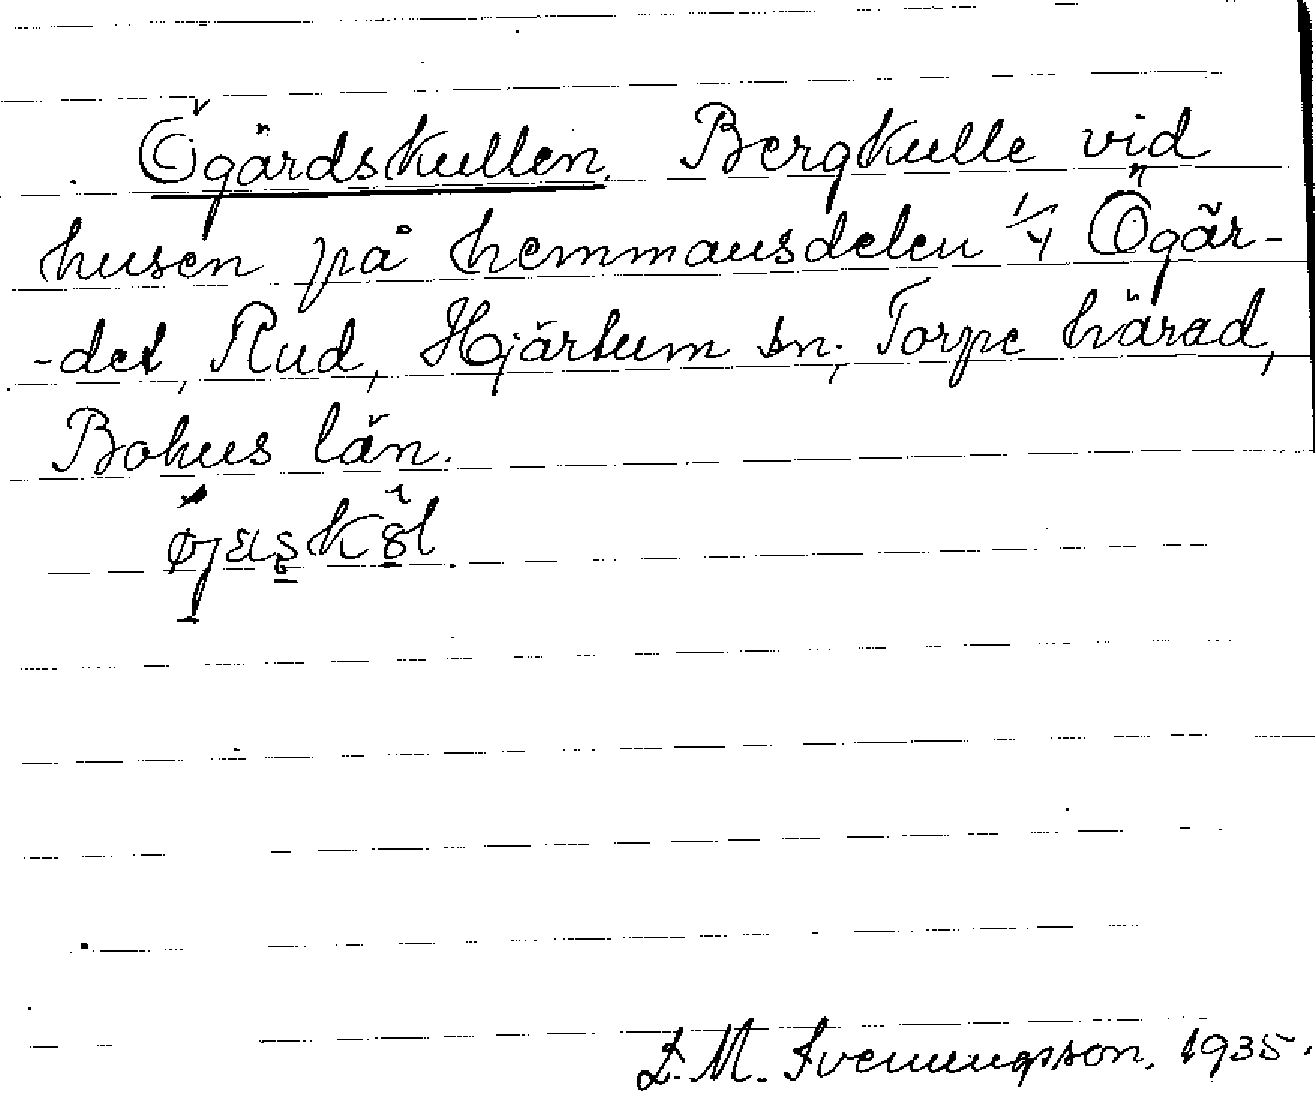 Ögärdskullen. Bergkulle vid
husen på hemmansdelen 1/4 Ögär-
-det, Rud, Hjärtum sn; Torpe härad,
Bohus län.
L. M. Svenungsson, 1935.